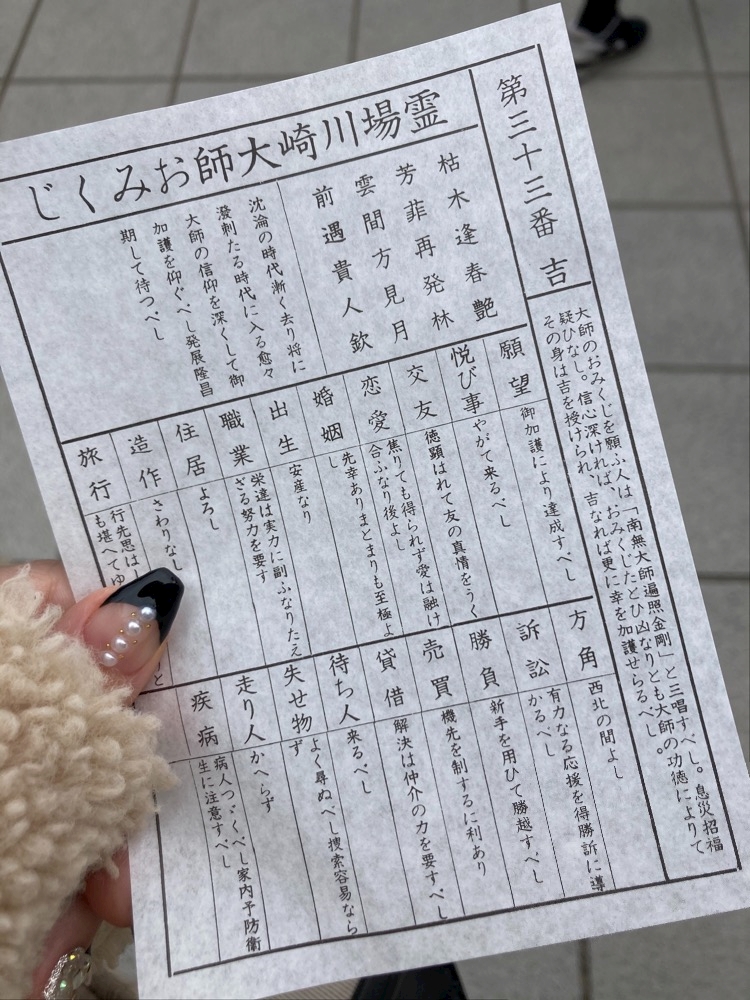 第三十三番 吉
大師のおみくじを願ふ人は「南無大師遍照金剛」と三唱すべし。息災招福
疑ひなし。信心深ければ、おみくじたとひ凶なりとも大師の功徳によりて
その身は吉を授けられ、吉なれば更に幸を加護せらるべし。
霊場川崎大師おみくじ
枯木逢春艶
芳菲再発林
雲間方見月
前遇貴人欽
沈淪の時代漸く去り将に
溌剌たる時代に入る愈々
大師の信仰を深くして御
加護を仰ぐべし発展隆昌
期して待つべし
願望
御加護により達成すべし
悦び事
やがて来るべし
交友
徳顕はれて友の真情をうく
恋愛
焦りても得られず愛は融け
合ふなり後よし
婚姻
先幸ありまとまりも至極よ
し
出生
安産なり
職業
栄達は実力に副ふなりたえ
ざる努力を要す
住居
よろし
造作
さわりなし
旅行
行先思は
も堪へてゆ
と
方角
西北の間よし
訴訟
有力なる応援を得勝訴に導
かるべし
勝負
新手を用ひて勝越すべし
売買
機先を制するに利あり
貸借
解決は仲介の力を要すべし
待ち人
来るべし
失せ物
よく尋ぬべし捜索容易なら
ず
走り人
かへらず
疾病
病人つゞくべし家内予防衛
生に注意すべし